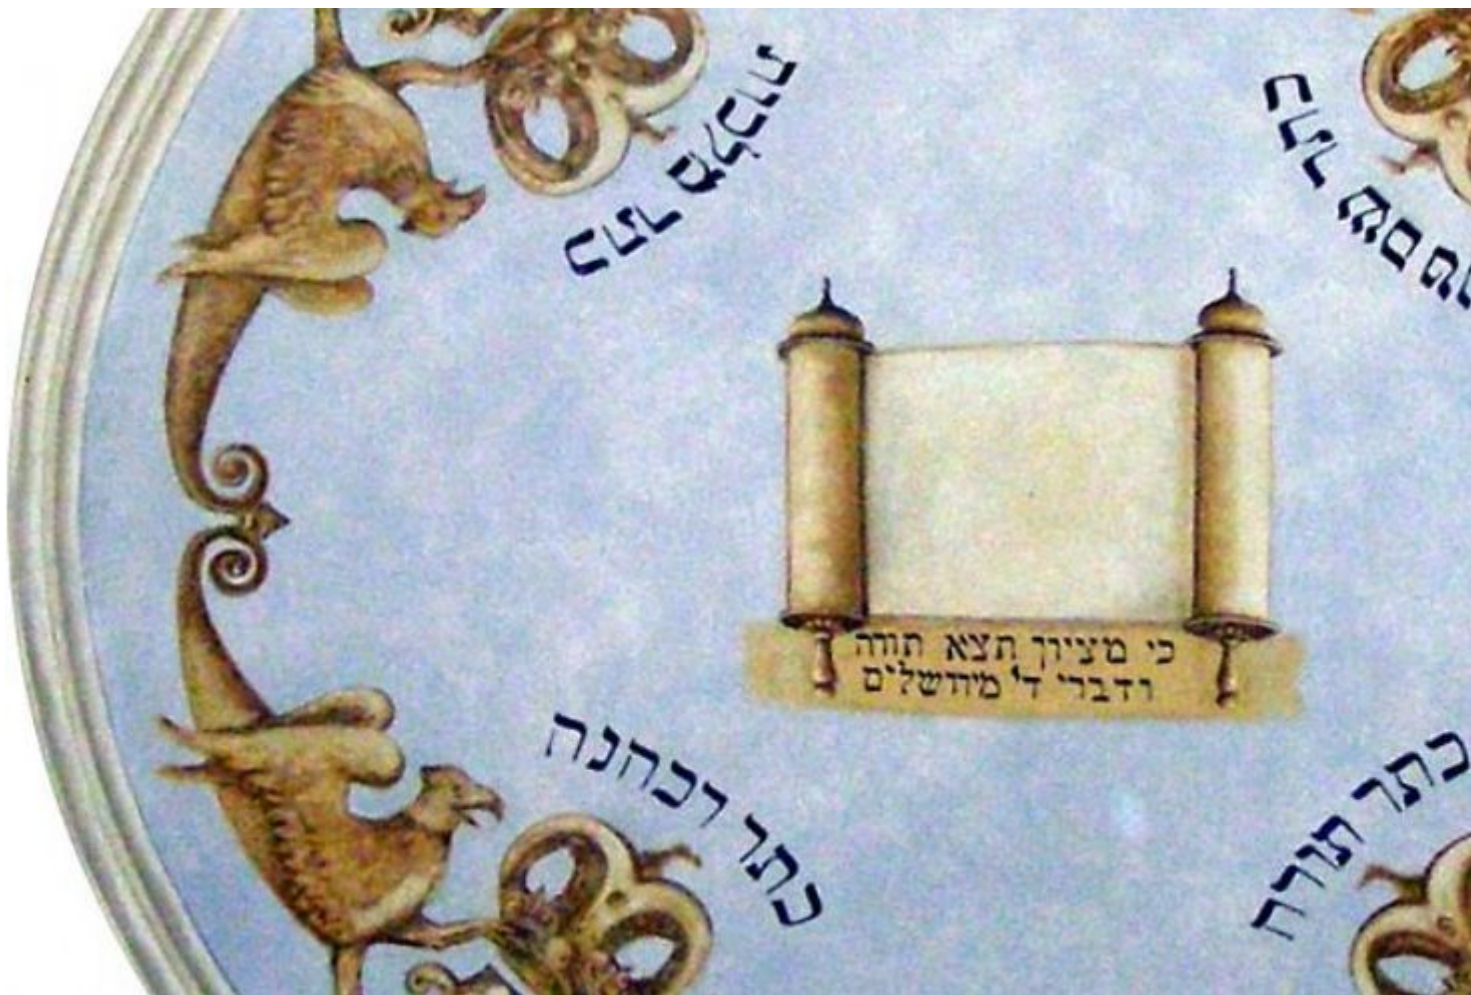 כתר מלכות
כתר שם
כי מציון תצא תורה
ודברי ד' מירושלים
כתר רכהנה
כתר תורה